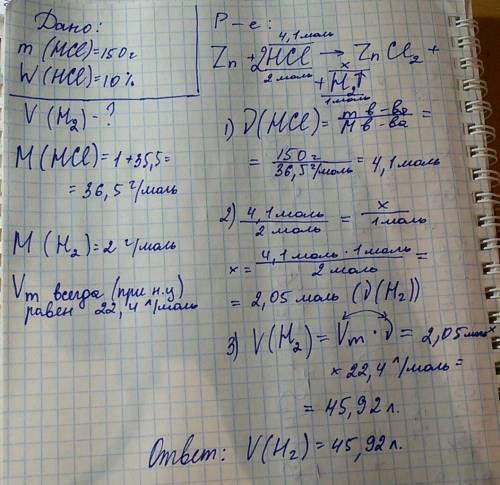 Дано:
m (HCl) = 150 г
W (HCl) = 10%
V (H₂) - ?
M (HCl) = 1 + 35,5 =
= 36,5 г/моль
M (H₂) = 2 г/моль
Vm всегда (при н.у)
равен 22,4 л/моль
Р-е:
4,1 моль
Zn + 2HCl → ZnCl₂ +
2 моль
x
+ H₂↑
1 моль
1) ν(HCl) = m в-ва / M в-ва =
= 150 г / 36,5 г/моль = 4,1 моль
2) 4,1 моль / 2 моль = x / 1 моль
x = 4,1 моль · 1 моль / 2 моль =
= 2,05 моль (ν(H₂))
3) V(H₂) = Vm · ν = 2,05 моль x
x 22,4 л/моль =
= 45,92 л.
Ответ: V(H₂) = 45,92 л.